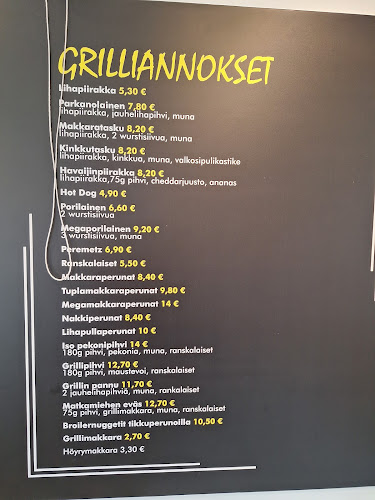 GRILLIANNOKSET
Lihapiirakka 5,30 €
Parkanolainen 7,80 €
lihapiirakka, jauhelihapihvi, muna
Makkaratasku 8,20 €
lihapiirakka, 2 wurstisiivua, muna
Kinkkutasku 8,20 €
lihapiirakka, kinkkua, muna, valkosipulikastike
Havaijinpiirakka 8,20 €
lihapiirakka,75g pihvi, cheddarjuusto, ananas
Hot Dog 4,90 €
Porilainen 6,60 €
2 wurstisiivua
Megaporilainen 9,20 €
3 wurstisiivua, muna
Peremetz 6,90 €
Ranskalaiset 5,50 €
Makkaraperunat 8,40 €
Tuplamakkaraperunat 9,80 €
Megamakkaraperunat 14 €
Nakkiperunat 8,40 €
Lihapullaperunat 10 €
Iso pekonipihvi 14 €
180g pihvi, pekonia, muna, ranskalaiset
Grillipihvi 12,70 €
180g pihvi, maustevoi, ranskalaiset
Grillin pannu 11,70 €
2 jauhelihapihviä, muna, rankalaiset
Matkamiehen eväs 12,70 €
75g pihvi, grillimakkara, muna, ranskalaiset
Broilernuggetit tikkuperunoilla 10,50 €
Grillimakkara 2,70 €
Höyrymakkara 3,30 €